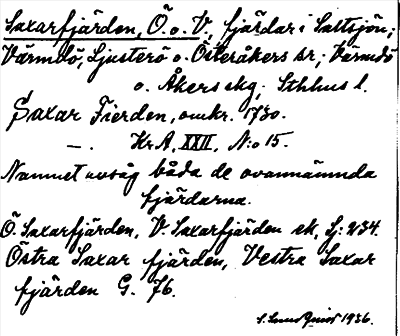 Saxarfjärden, Ö. o. V., fjärdar i Saltsjön;
Värmdö, Ljusterö o. Österåkers sr; Värmdö
o. Åkers skg; Sthlms l.
Saxar Fierden, omkr. 1730.
—. Kr A, XXII, N:o 15.
Namnet avsåg båda de ovannämnda
fjärdarna.
Ö. Saxarfjärden, V. Saxarfjärden ek, J: 234.
Östra Saxar fjärden, Vestra Saxar
fjärden G. 76.
1936.